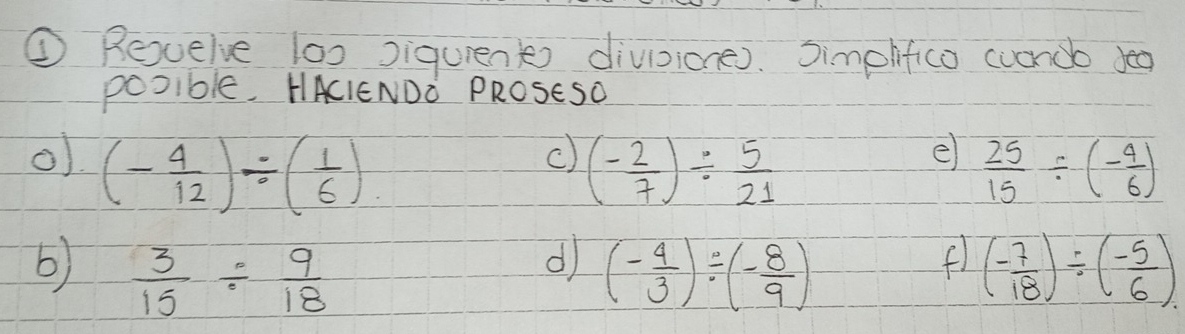 ① Resuelve las siguientes divisiones. Simplifica cuando sea
posible. HACIENDO PROSESO
a). (-4/12) ÷ (1/6). c) (-2/7) ÷ 5/21 e) 25/15 ÷ (-4/6)
b) 3/15 ÷ 9/18 d) (-4/3) ÷ (-8/9) f) (-7/18) ÷ (-5/6).